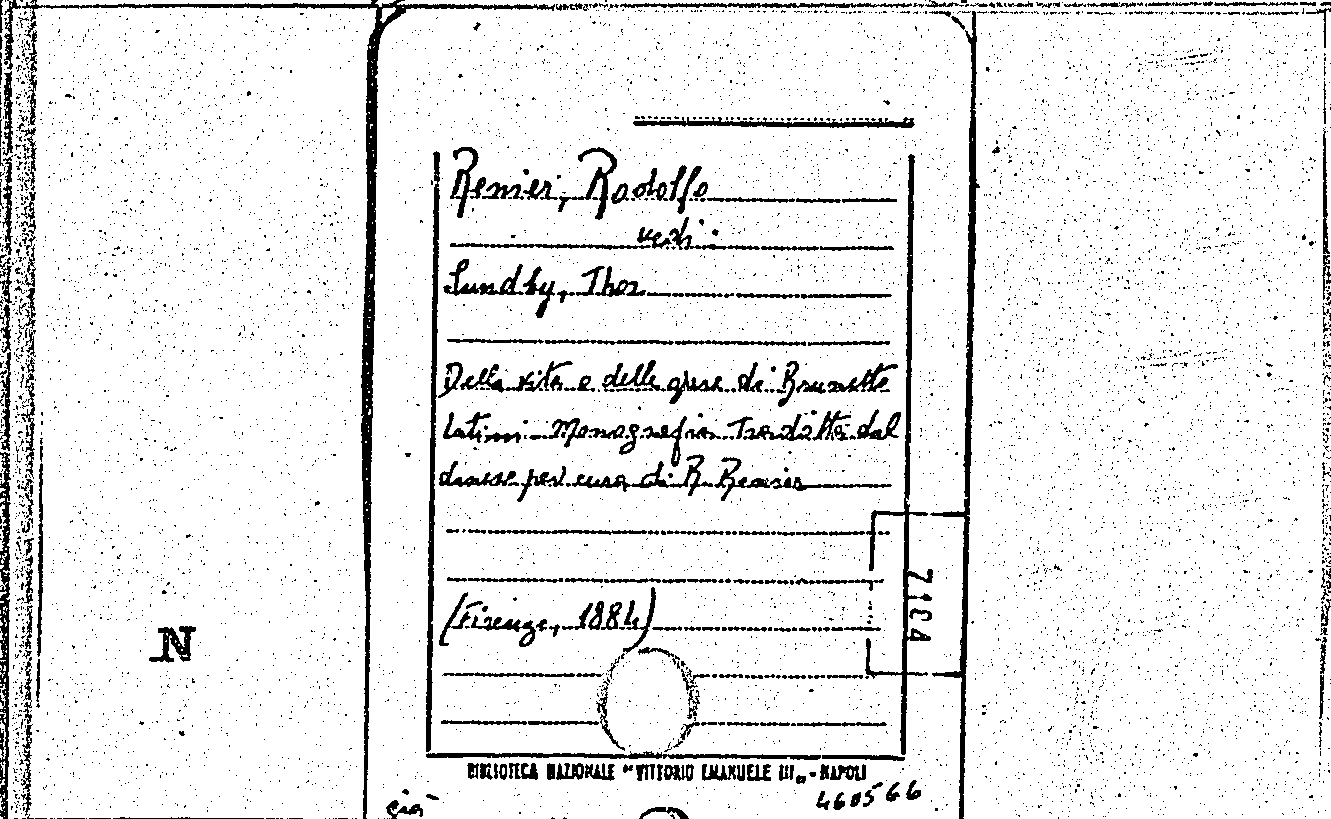 Renier, Rodolfo
vedi:
Sundby, Thor
Della vita e delle opere di Brunetto
Latini. Monografia Tradotta dal
danese per cura di R. Renier
(Firenze, 1884)
7104
N
BIBLIOTECA NAZIONALE "VITTORIO EMANUELE III" - NAPOLI
già
460566